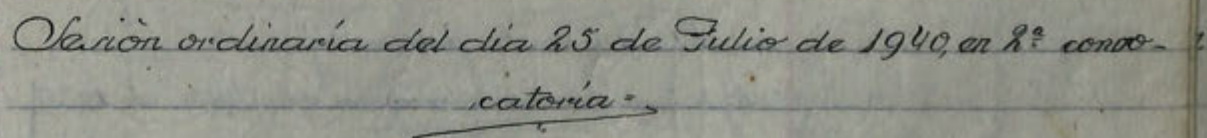 Sesiòn ordinaría del día 25 de Julio de 1940, en 2ª convo-
catoría=